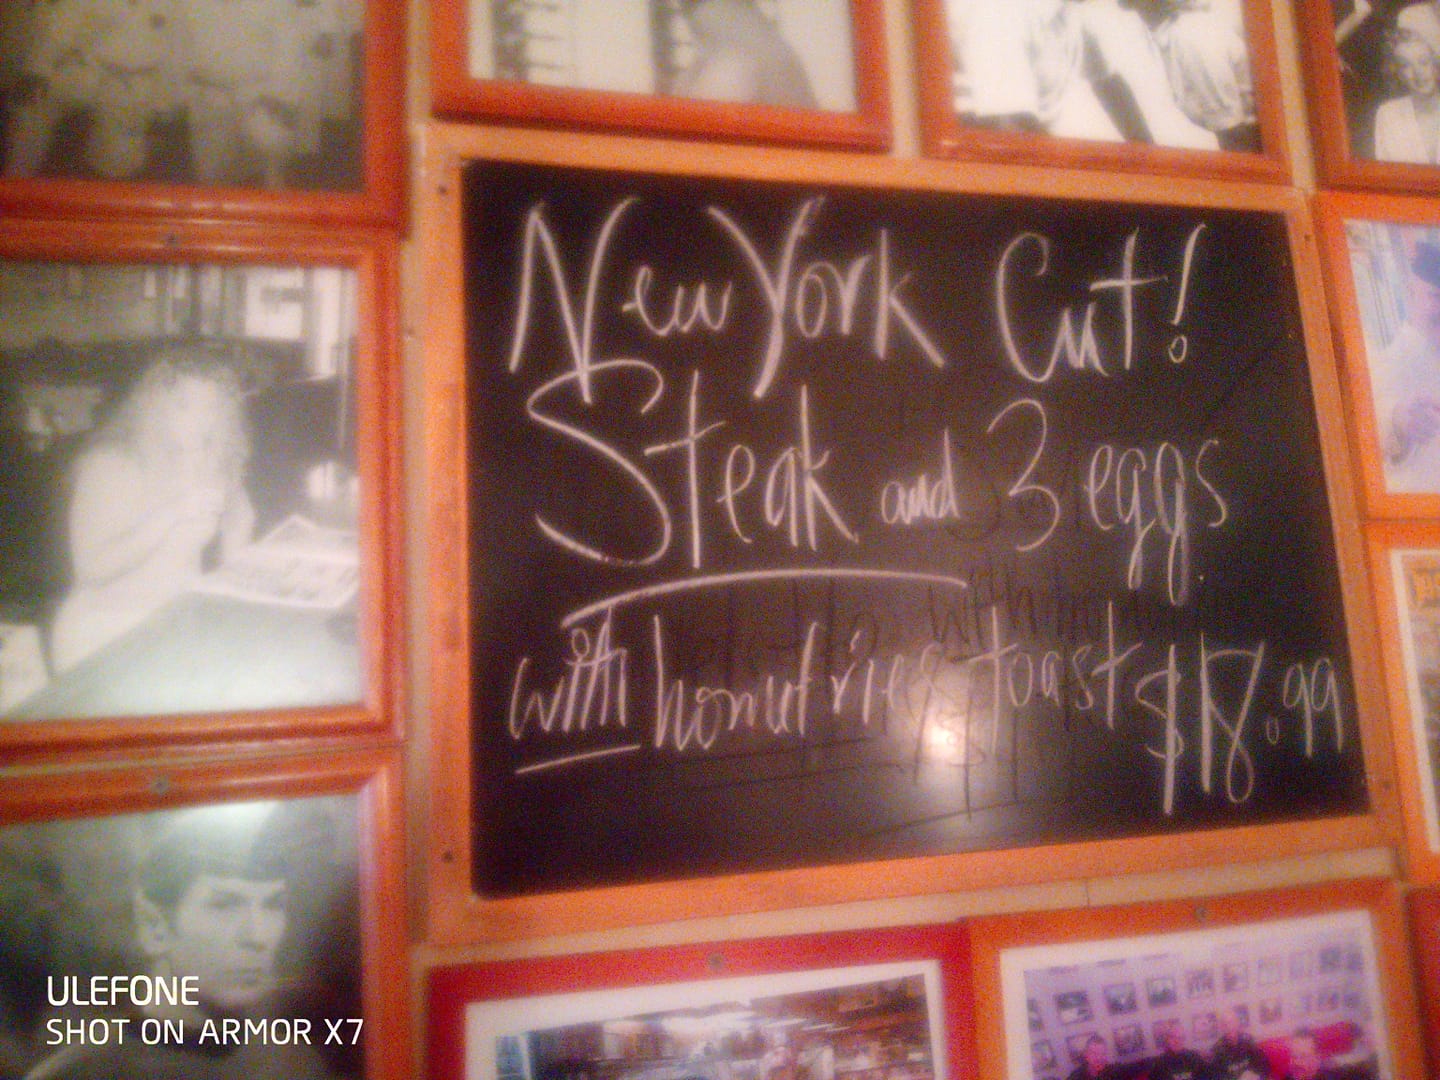 New York Cut!
Steak and 3 eggs
with homefries toast $18.99
ULEFONE
SHOT ON ARMOR X7